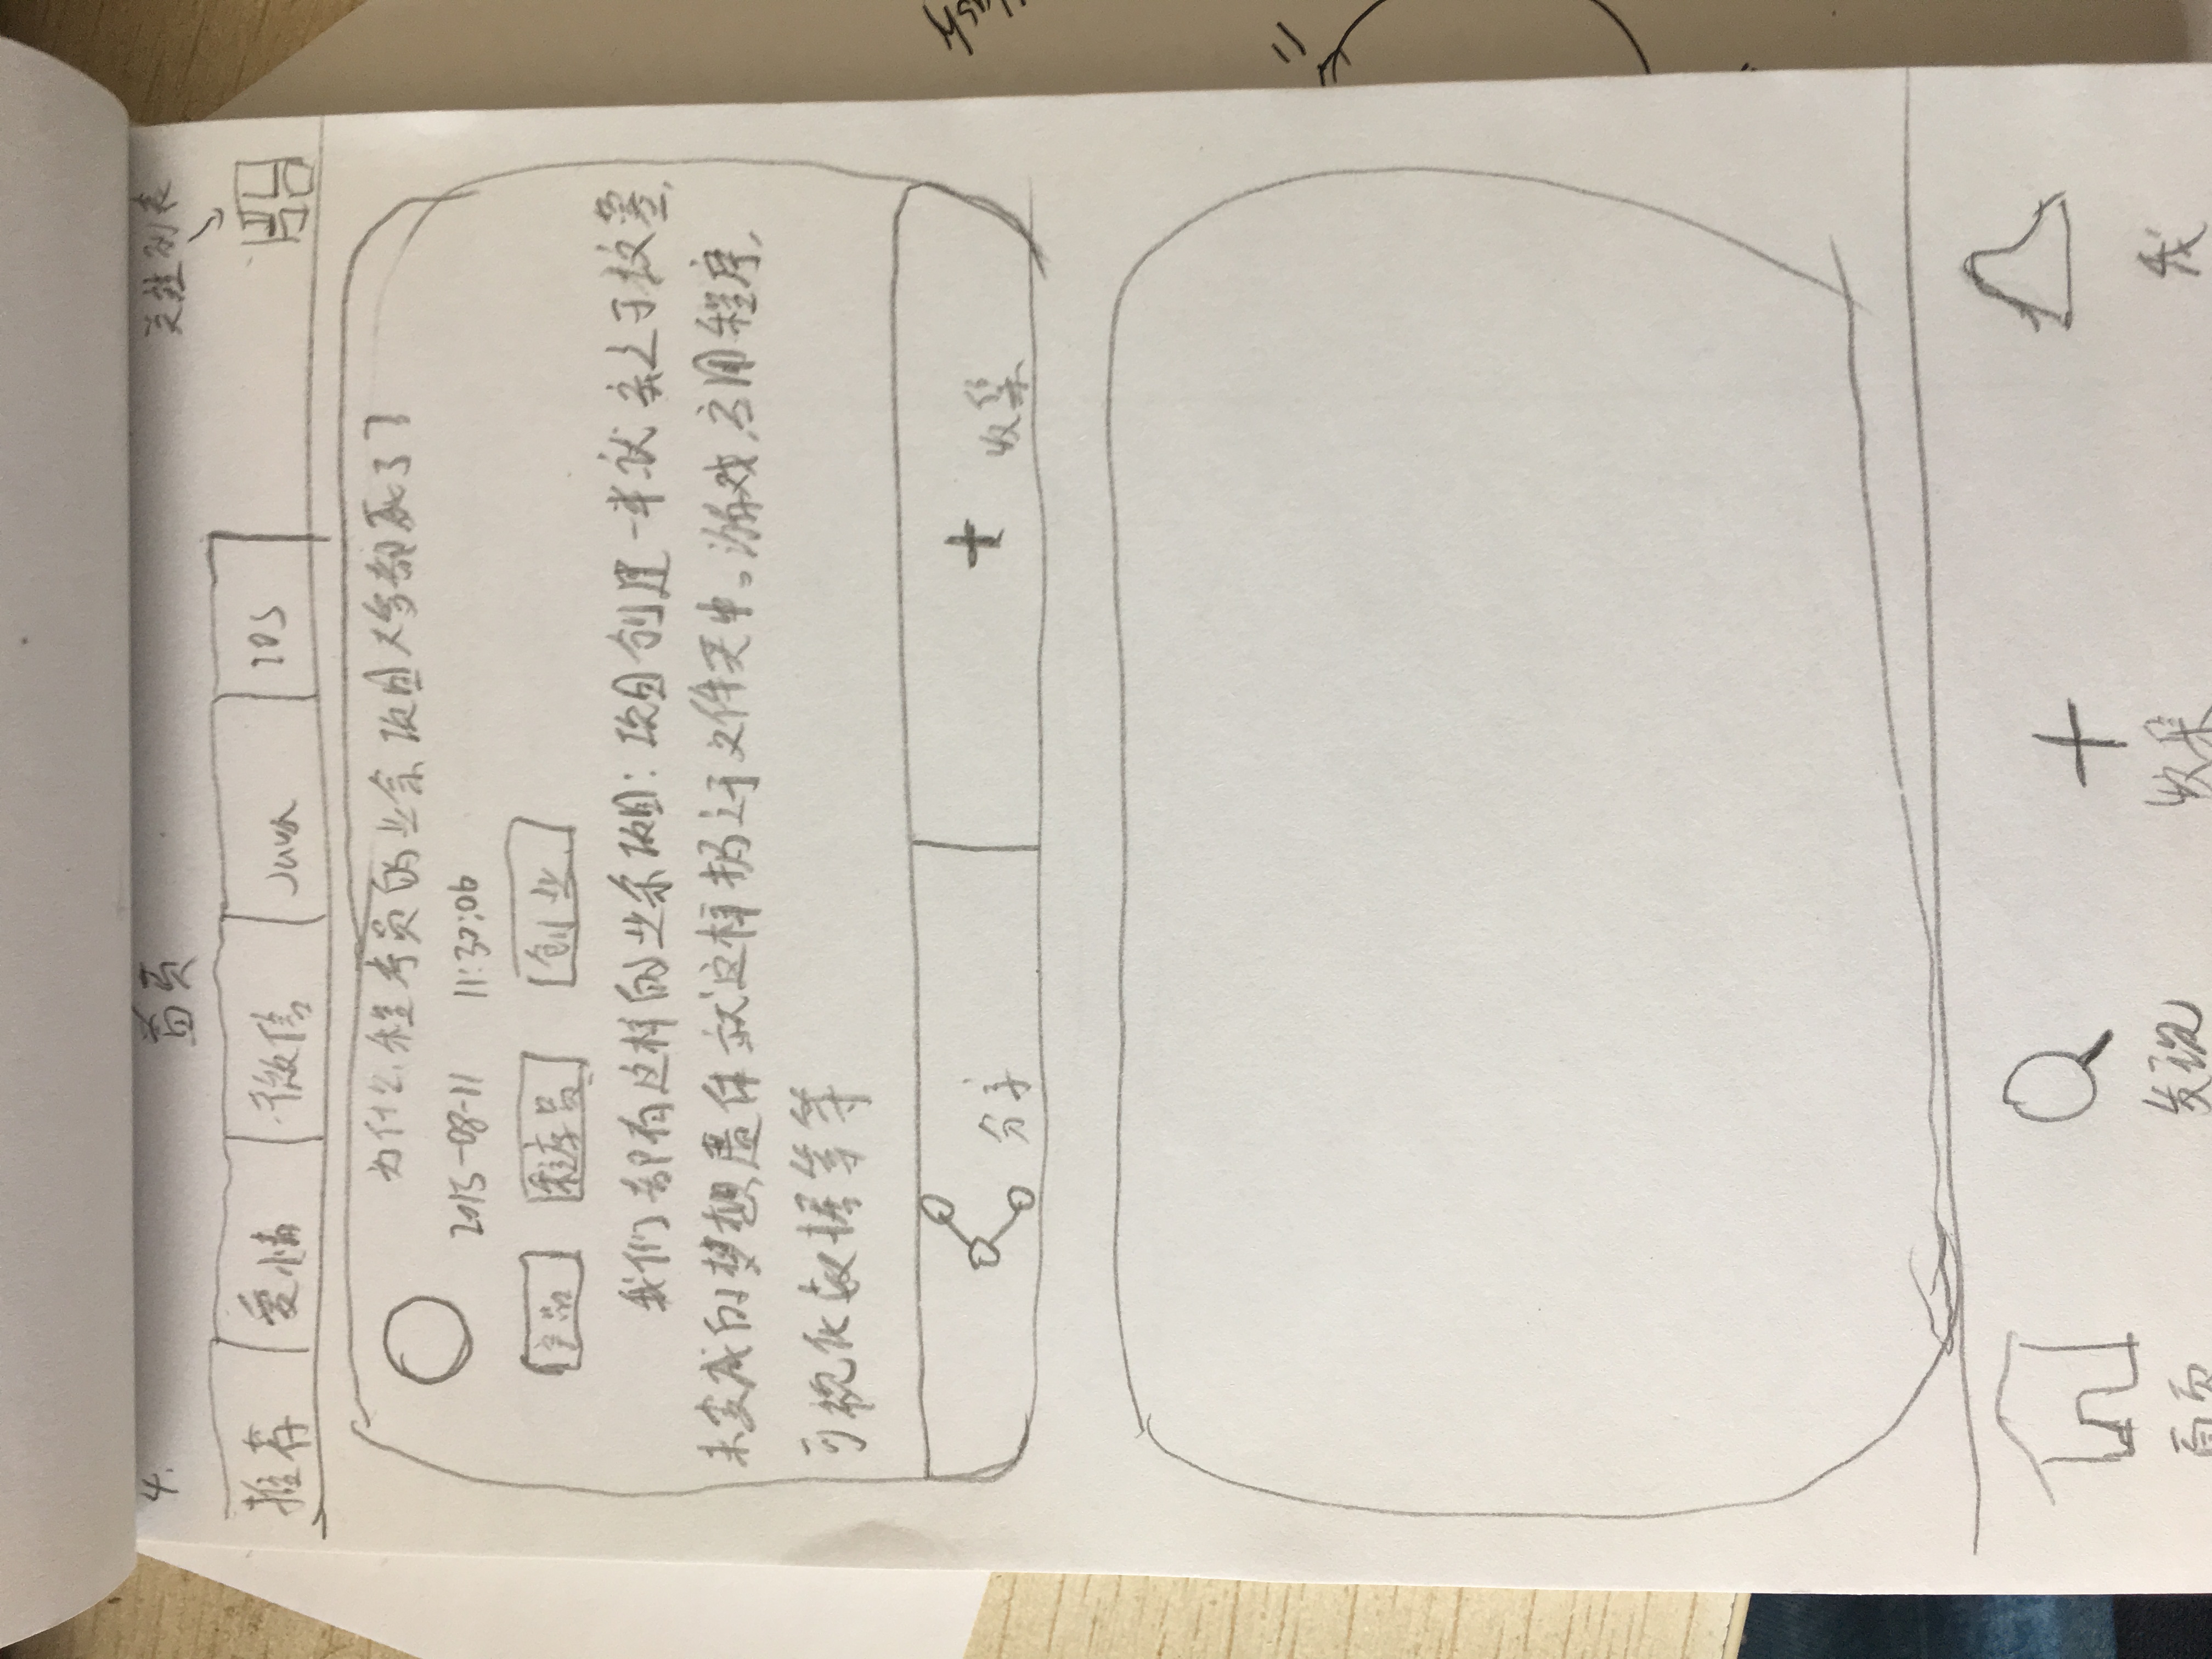 4.
首页
关注列表
推荐 爱情 微信 Java IOS
为什么程序员的业余项目大多都死了?
2015-08-11 11:30:06
产品 程序员 创业
我们都有这样的业余项目:项目创建一半就弃之于坟墓,
未变成的梦想遗体就这样扔之于文件夹中。游戏,应用程序,
可视化数据等等
分享 + 收集
首页 发现 收集 我